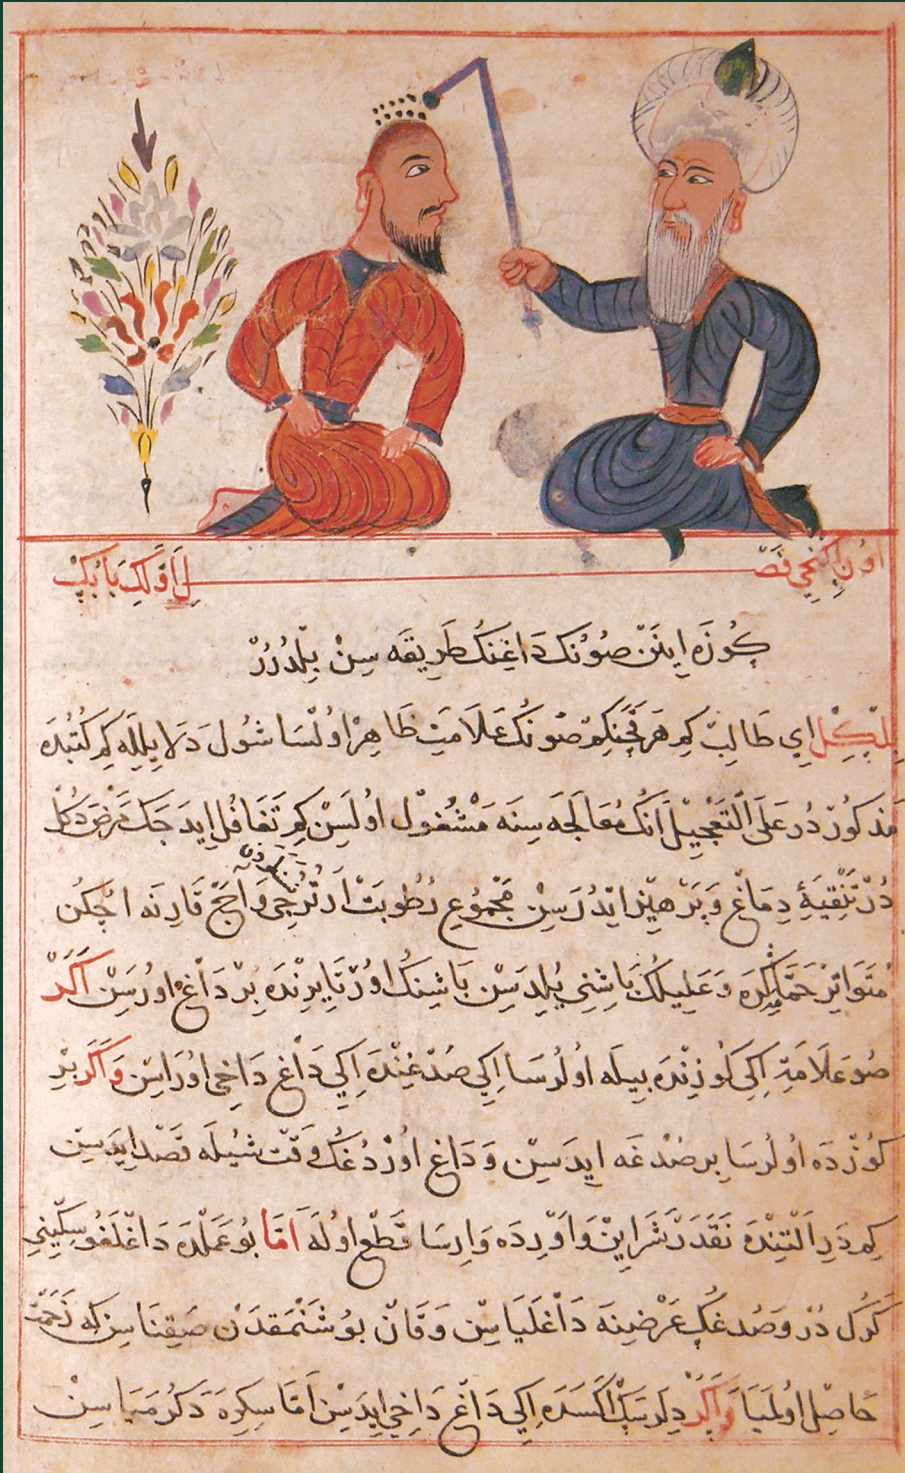 اوُنِ اِكِنْجِي فَصْلِ اَوَّلكِ بَابُكِ
كُوزَه اِينَنْ صُوُنُك دَاغِنِكُ طَرِيقَه سِنْ بِلْدُرُرْ
بِلْكِلْ اِي طَالِبْ كِمْ هَرقَچَنكِمْ صُونُكْ عَلَامَتِ ظَاهِرْ اوُلْسَا شُول دَلَايِلِلَه كِمْ كُتُبْدَه
مَذكوُرْدُر عَلَى التَّعْجِيلْ اَنُكْ مُعَالَجَه سِنَه مَشْغُولْ اوُلَسِنْ كِمْ تَغَافُل اِيدَجَكْ مَرَضْ دَكُلْ
دُرْ تَنْقِيَهٔ دِمَاغْ وَپَرْهِيزْ اِيْدُرَسِنْ مَجْمُوُعِ رُطُوبَتْ اَرْتُرُجِي وَاَجّ قَارنَه
مُتَوَاتِرْ حَمَّامَه كِرَه وَعَلِيلُكْ بَاشِنِي يُلِدَسِنْ بَاشِنُكْ اوُرْتَا يِرِنْدَه بِرْ دَاغْ اوُرَسِنْ اَكَرْ
صُو عَلَامَتِ اِكِي كُوزِنْدَه بِيلَه اوُلُرسَا اِكِي صُدْغِنْدَه اِكِي دَاغْ دَاخِي اوُرَاسِنْ وَاَكَرْ بِرْ
كُوُزْدَه اوُلُرسَا بِر صُدْغَه اِيدَسِنْ وَدَاغِ اوُرْدُغُكْ وَقْتْ شُيْلَه قَصْد اِيدَسِنْ
كِمْ دَرِ اَلْتِنْدَه نَقَدَرْ شَرَايِنْ وَاَوْرِدَه وَارِسَا قَطْعْ اوُلَه اَمَّا بُو عَمَلْدَه دَاغْلَغُو سِكِّينِي
كَرَكْ دُرْ وَصُدغُكْ عَرْضِينَه دَاغْلَيَاسِنْ وَقَانْ بوُشَنْمَقدَنْ صَقِنَاسِنْ كه زَحْمَتْ
حَاصِلْ اوُلْمَيَا وَاَكَرْ دِلَرسَكْ اَكْسَدَه اِكِي دَاغْ دَاخِي اِيدَسِنْ اَمَّا سِكِرَه دَكُرْمَيَاسِنْ